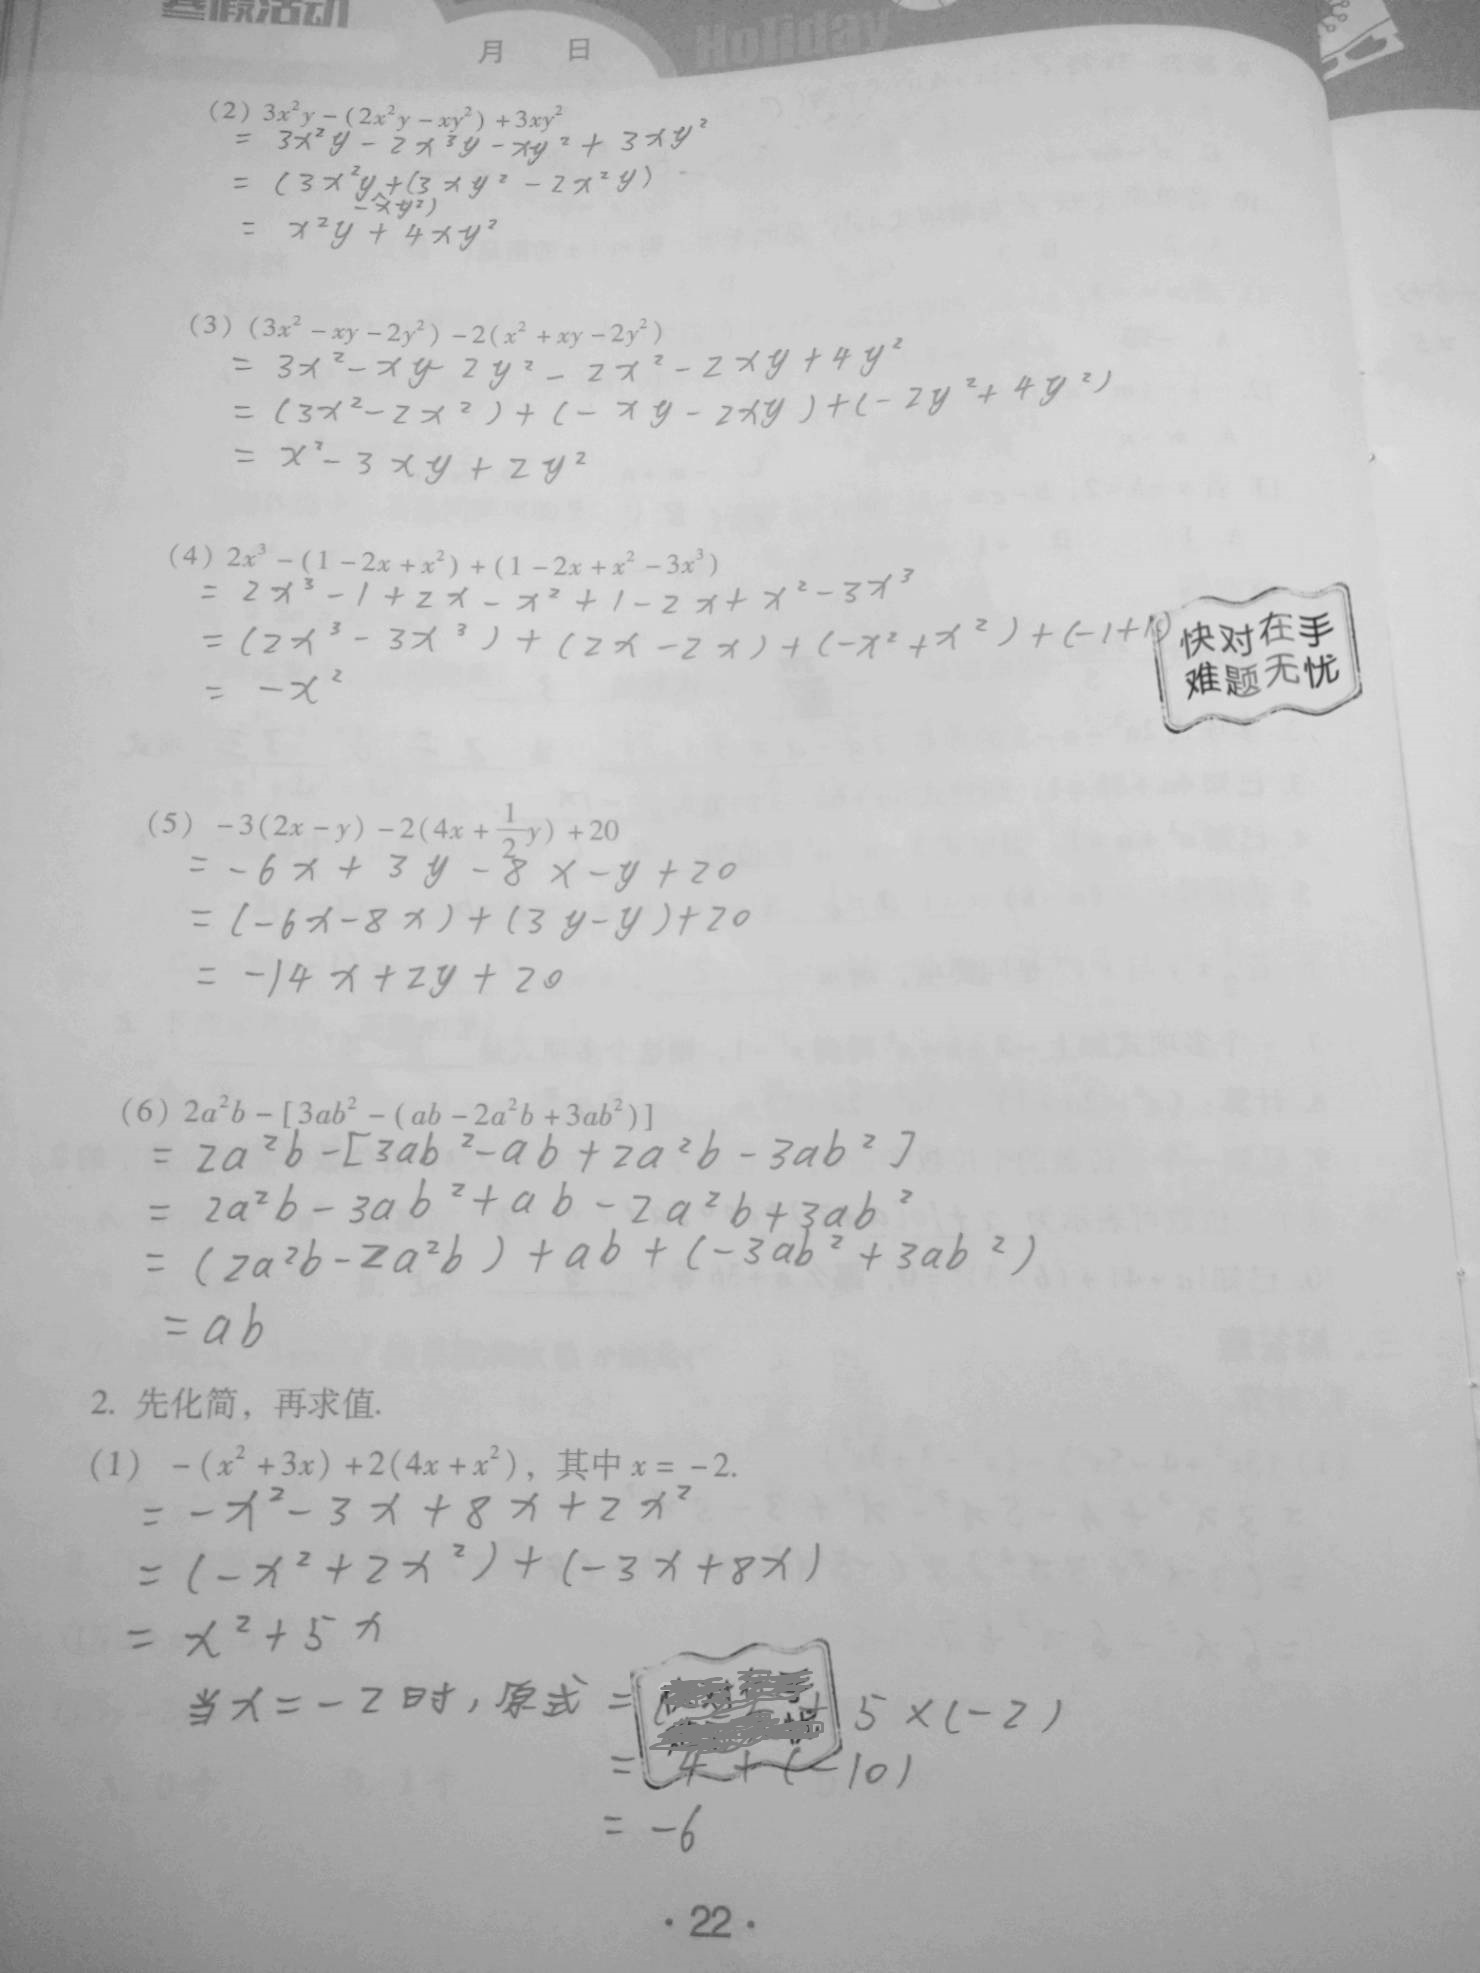 暑假活动
Holiday
月 日
(2) 3x²y-(2x²y-xy²)+3xy²
= 3x²y-2x³y-xy²+3xy²
= (3x²y+(3xy²-2x²y)
-xy²)
= x²y+4xy²
(3) (3x²-xy-2y²)-2(x²+xy-2y²)
= 3x²-xy 2y²-2x²-2xy+4y²
= (3x²-2x²)+(-xy-2xy)+(-2y²+4y²)
= x²-3xy+2y²
(4) 2x³-(1-2x+x²)+(1-2x+x²-3x³)
= 2x³-1+2x-x²+1-2x+x²-3x³
= (2x³-3x³)+(2x-2x)+(-x²+x²)+(-1+1)
快对在手
难题无忧
= -x²
(5) -3(2x-y)-2(4x+½y)+20
= -6x+3y-8x-y+20
= (-6x-8x)+(3y-y)+20
= -14x+2y+20
(6) 2a²b-[3ab²-(ab-2a²b+3ab²)]
= 2a²b-[3ab²-ab+2a²b-3ab²]
= 2a²b-3ab²+ab-2a²b+3ab²
= (2a²b-2a²b)+ab+(-3ab²+3ab²)
= ab
2. 先化简，再求值.
(1) -(x²+3x)+2(4x+x²)，其中x=-2.
= -x²-3x+8x+2x²
= (-x²+2x²)+(-3x+8x)
= x²+5x
当x=-2时，原式= + 5×(-2)
= 4+(-10)
= -6
·22·